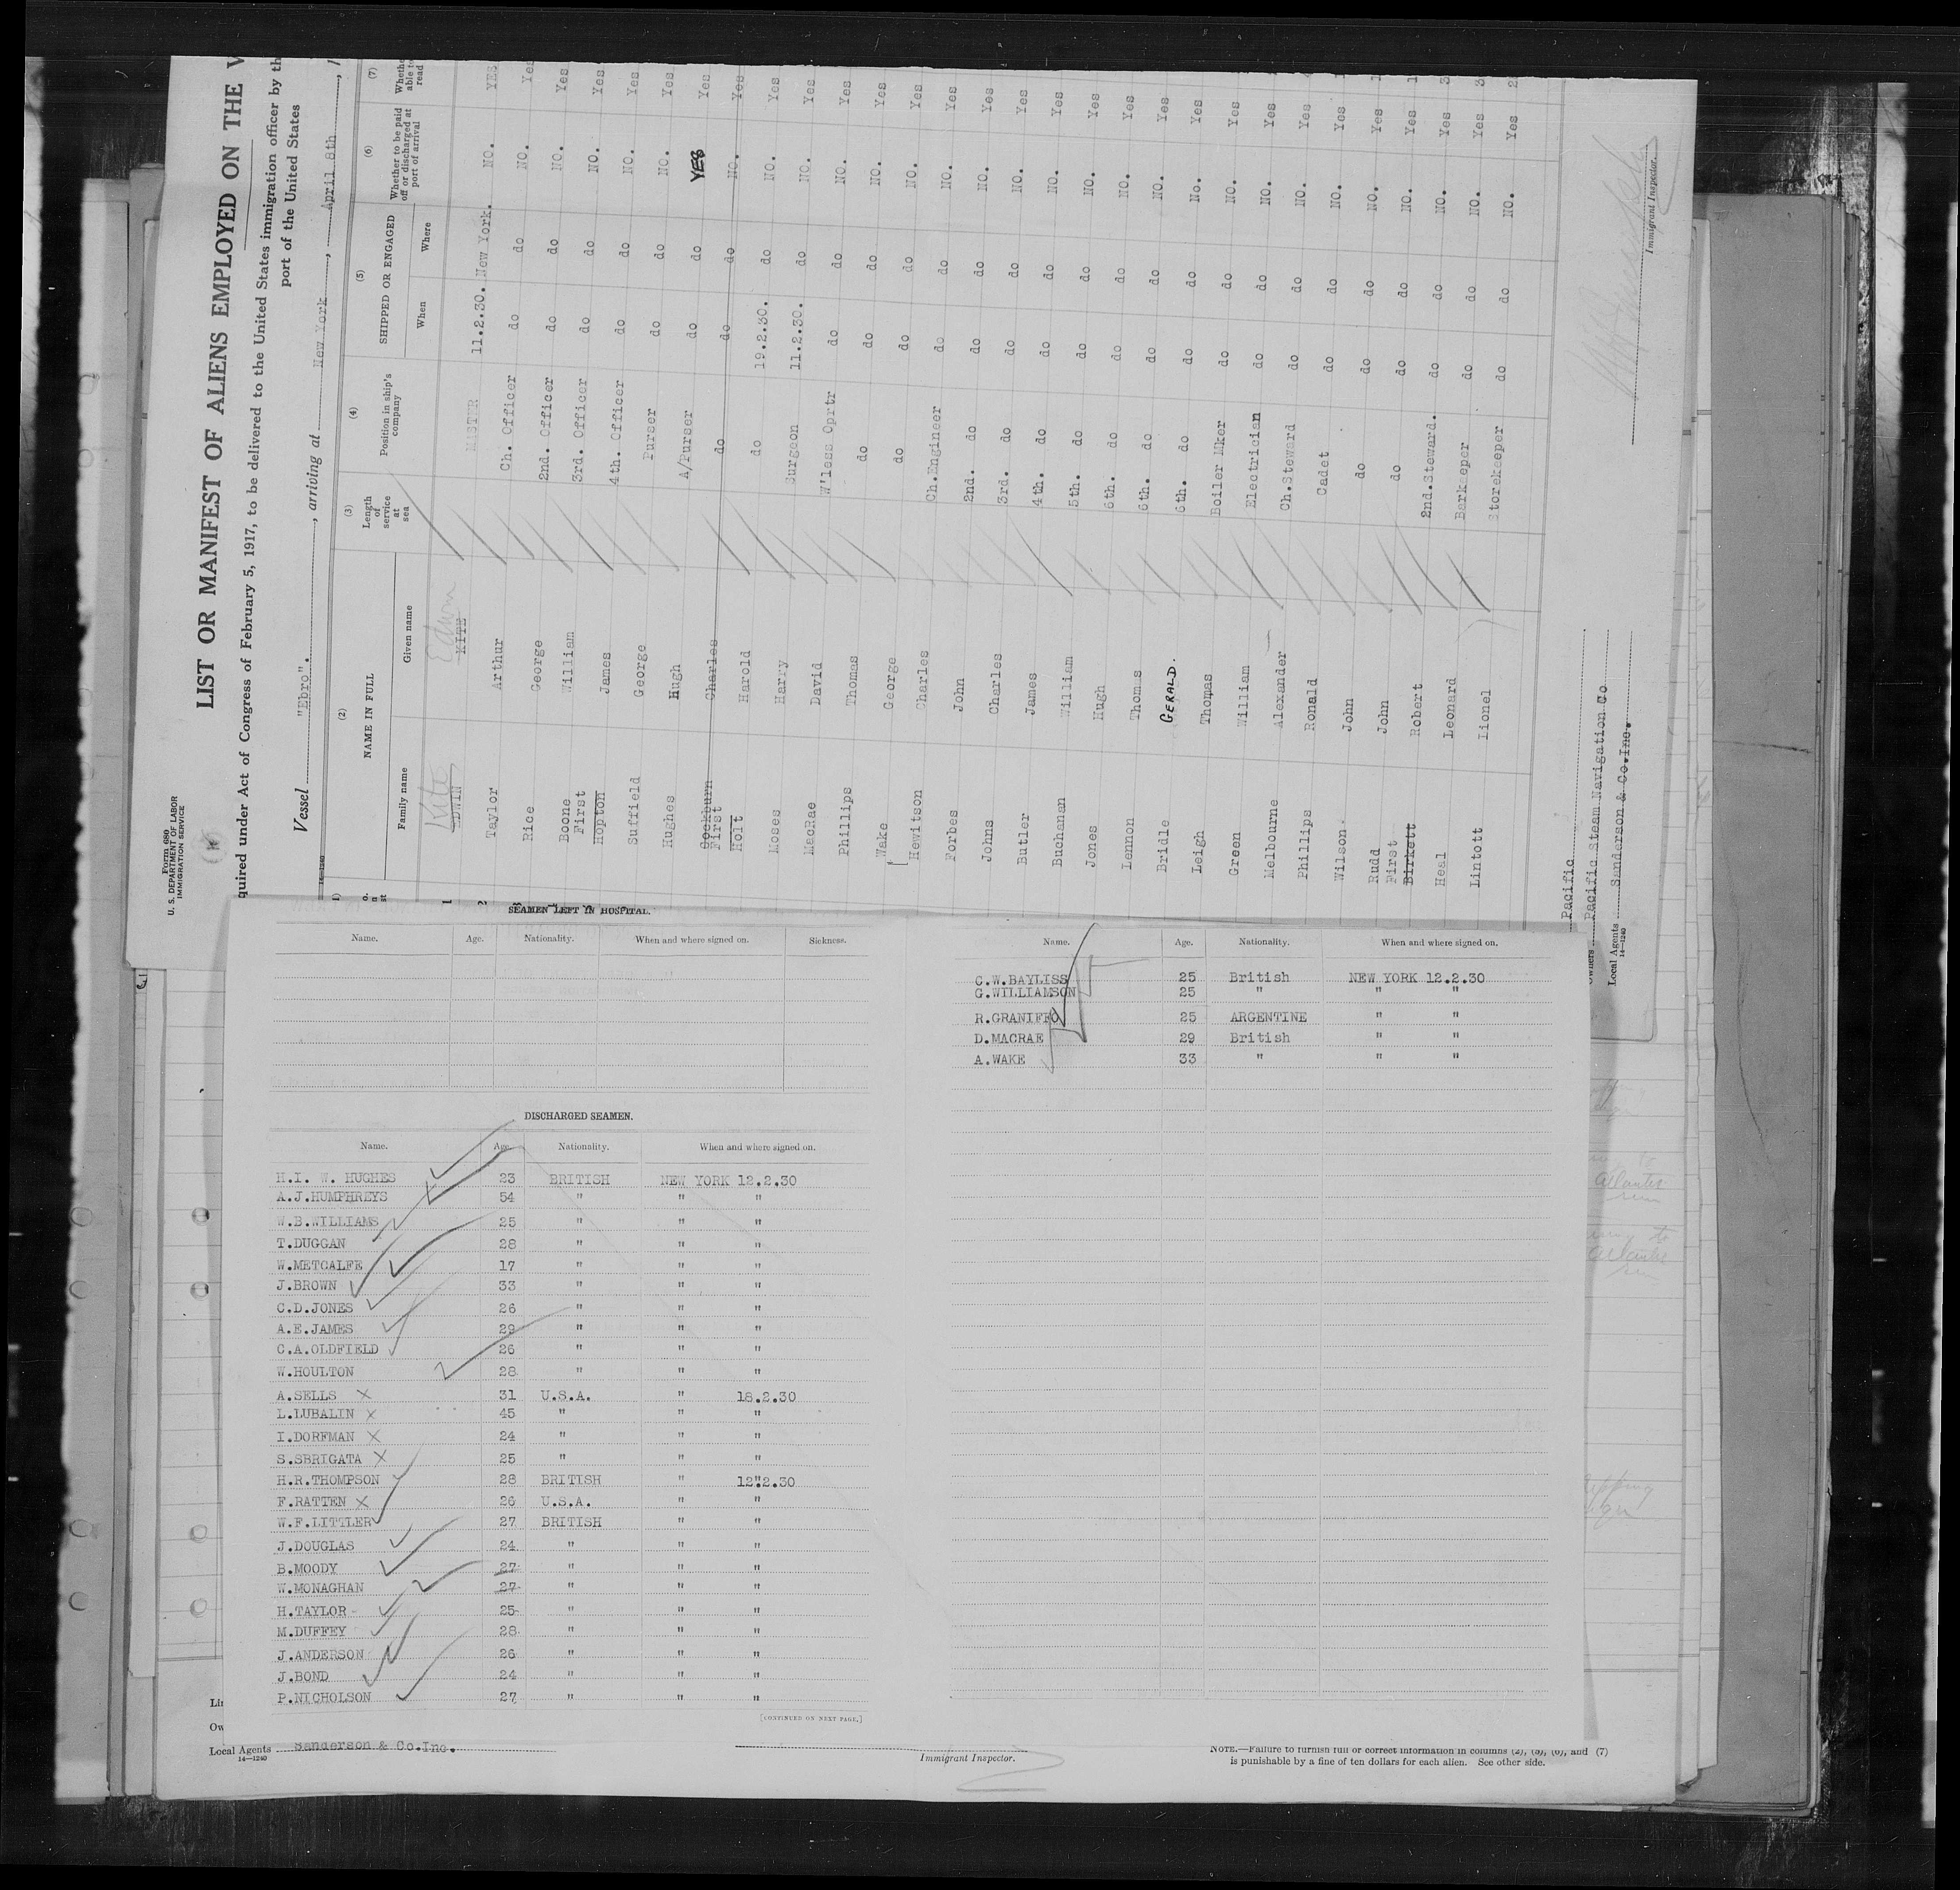 Form 680
U. S. DEPARTMENT OF LABOR
IMMIGRATION SERVICE
LIST OR MANIFEST OF ALIENS EMPLOYED ON THE
quired under Act of Congress of February 5, 1917, to be delivered to the United States immigration officer by th
port of the United States
Vessel "Ebro". , arriving at New York , April 8th ,
14-1240
(2) (3) (4) (5) (6) (7)
NAME IN FULL Length of service at sea Position in ship's company SHIPPED OR ENGAGED Whether to be paid off or discharged at port of arrival Whethe able to read
Family name Given name When Where
1 Kite Edwin
EDWIN KITE MASTER 11.2.30. New York. NO. YES
2 Taylor Arthur Ch. Officer do do NO. Yes
Rice George 2nd. Officer do do NO. Yes
Boone William 3rd. Officer do do NO. Yes
First
Hopton James 4th. Officer do do NO. Yes
Suffield George Purser do do NO. Yes
Hughes Hugh A/Purser do do YES Yes
Cockburn Charles do do do NO. Yes
First
Holt Harold do 19.2.30. do NO. Yes
Moses Harry Surgeon 11.2.30. do NO. Yes
MacRae David W'less Oprtr do do NO. Yes
Phillips Thomas do do do NO. Yes
Wake George do do do NO. Yes
Hewitson Charles Ch.Engineer do do NO. Yes
Forbes John 2nd. do do do NO. Yes
Johns Charles 3rd. do do do NO. Yes
Butler James 4th. do do do NO. Yes
Buchanan William 5th. do do do NO. Yes
Jones Hugh 6th. do do do NO. Yes
Lennon Thom s 6th. do do do NO. Yes
Bridle GERALD. 6th. do do do No. Yes
Leigh Thomas Boiler Mker do do NO. Yes
Green William Electrician do do NO. Yes
Melbourne Alexander Ch.Steward do do NO. Yes
Phillips Ronald Cadet do do NO. Yes
Wilson. John do do do NO. Yes
Rudd John do do do NO. Yes
First
Birkett Robert 2nd.Steward. do do NO. Yes
Heal Leonard Barkeeper do do NO. Yes
Lintott Lionel Storekeeper do do NO. Yes
Pacific
Owners Pacific Steam Navigation Co
Local Agents Sanderson & Co.Inc.
14-1240
Immigrant Inspector.
SEAMEN LEFT IN HOSPITAL.
Name. Age. Nationality. When and where signed on. Sickness.
DISCHARGED SEAMEN.
Name. Age. Nationality. When and where signed on.
H.I. W. HUGHES 23 BRITISH NEW YORK 12.2.30
A.J.HUMPHREYS 54 " " "
W.B.WILLIAMS 25 " " "
T.DUGGAN 28 " " "
W.METCALFE 17 " " "
J.BROWN 33 " " "
C.D.JONES 26 " " "
A.E.JAMES 29 " " "
C.A.OLDFIELD 26 " " "
W.HOULTON 28 " " "
A.SELLS X 31 U.S.A. " 18.2.30
L.LUBALIN X 45 " " "
I.DORFMAN X 24 " " "
S.SBRIGATA X 25 " " "
H.R.THOMPSON 28 BRITISH " 12"2.30
F.RATTEN X 26 U.S.A. " "
W.F.LITTLER 27 BRITISH " "
J.DOUGLAS 24 " " "
B.MOODY 27 " " "
W.MONAGHAN 27 " " "
H.TAYLOR 25 " " "
M.DUFFEY 28 " " "
J.ANDERSON 26 " " "
J.BOND 24 " " "
P.NICHOLSON 27 " " "
[CONTINUED ON NEXT PAGE.]
Name. Age. Nationality. When and where signed on.
C.W.BAYLISS 25 British NEW YORK 12.2.30
G.WILLIAMSON 25 " " "
R.GRANIFFO 25 ARGENTINE " "
D.MACRAE 29 British " "
A.WAKE 33 " " "
Lin
Ow
Local Agents Sanderson & Co.Inc.
14-1240
Immigrant Inspector.
NOTE.—Failure to furnish full or correct information in columns (2), (5), (6), and (7)
is punishable by a fine of ten dollars for each alien. See other side.